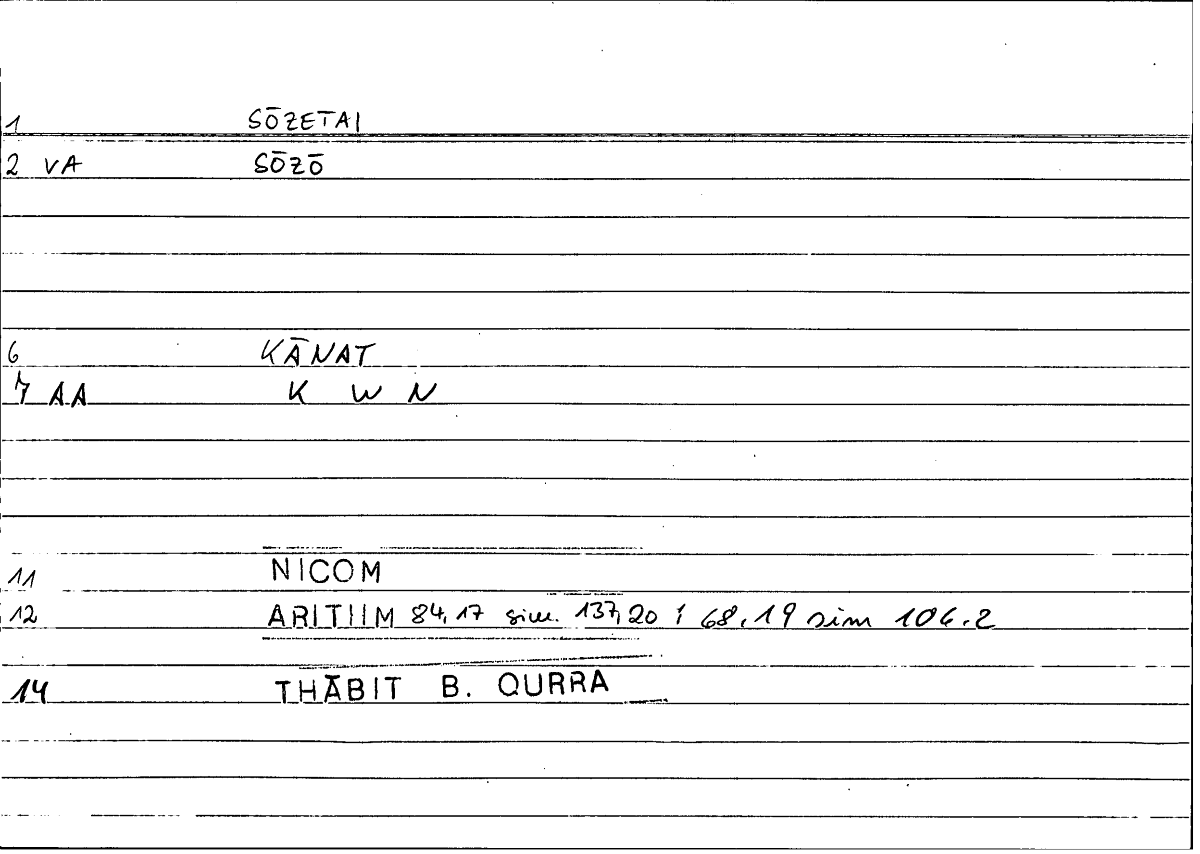 1 SŌZETAI
2 VA SŌZŌ
6 KĀNAT
7 AA K W N
11 NICOM
12 ARITIIM 84,17 sim. 137,20 ; 68,19 sim 106.2
14 THĀBIT B. QURRA